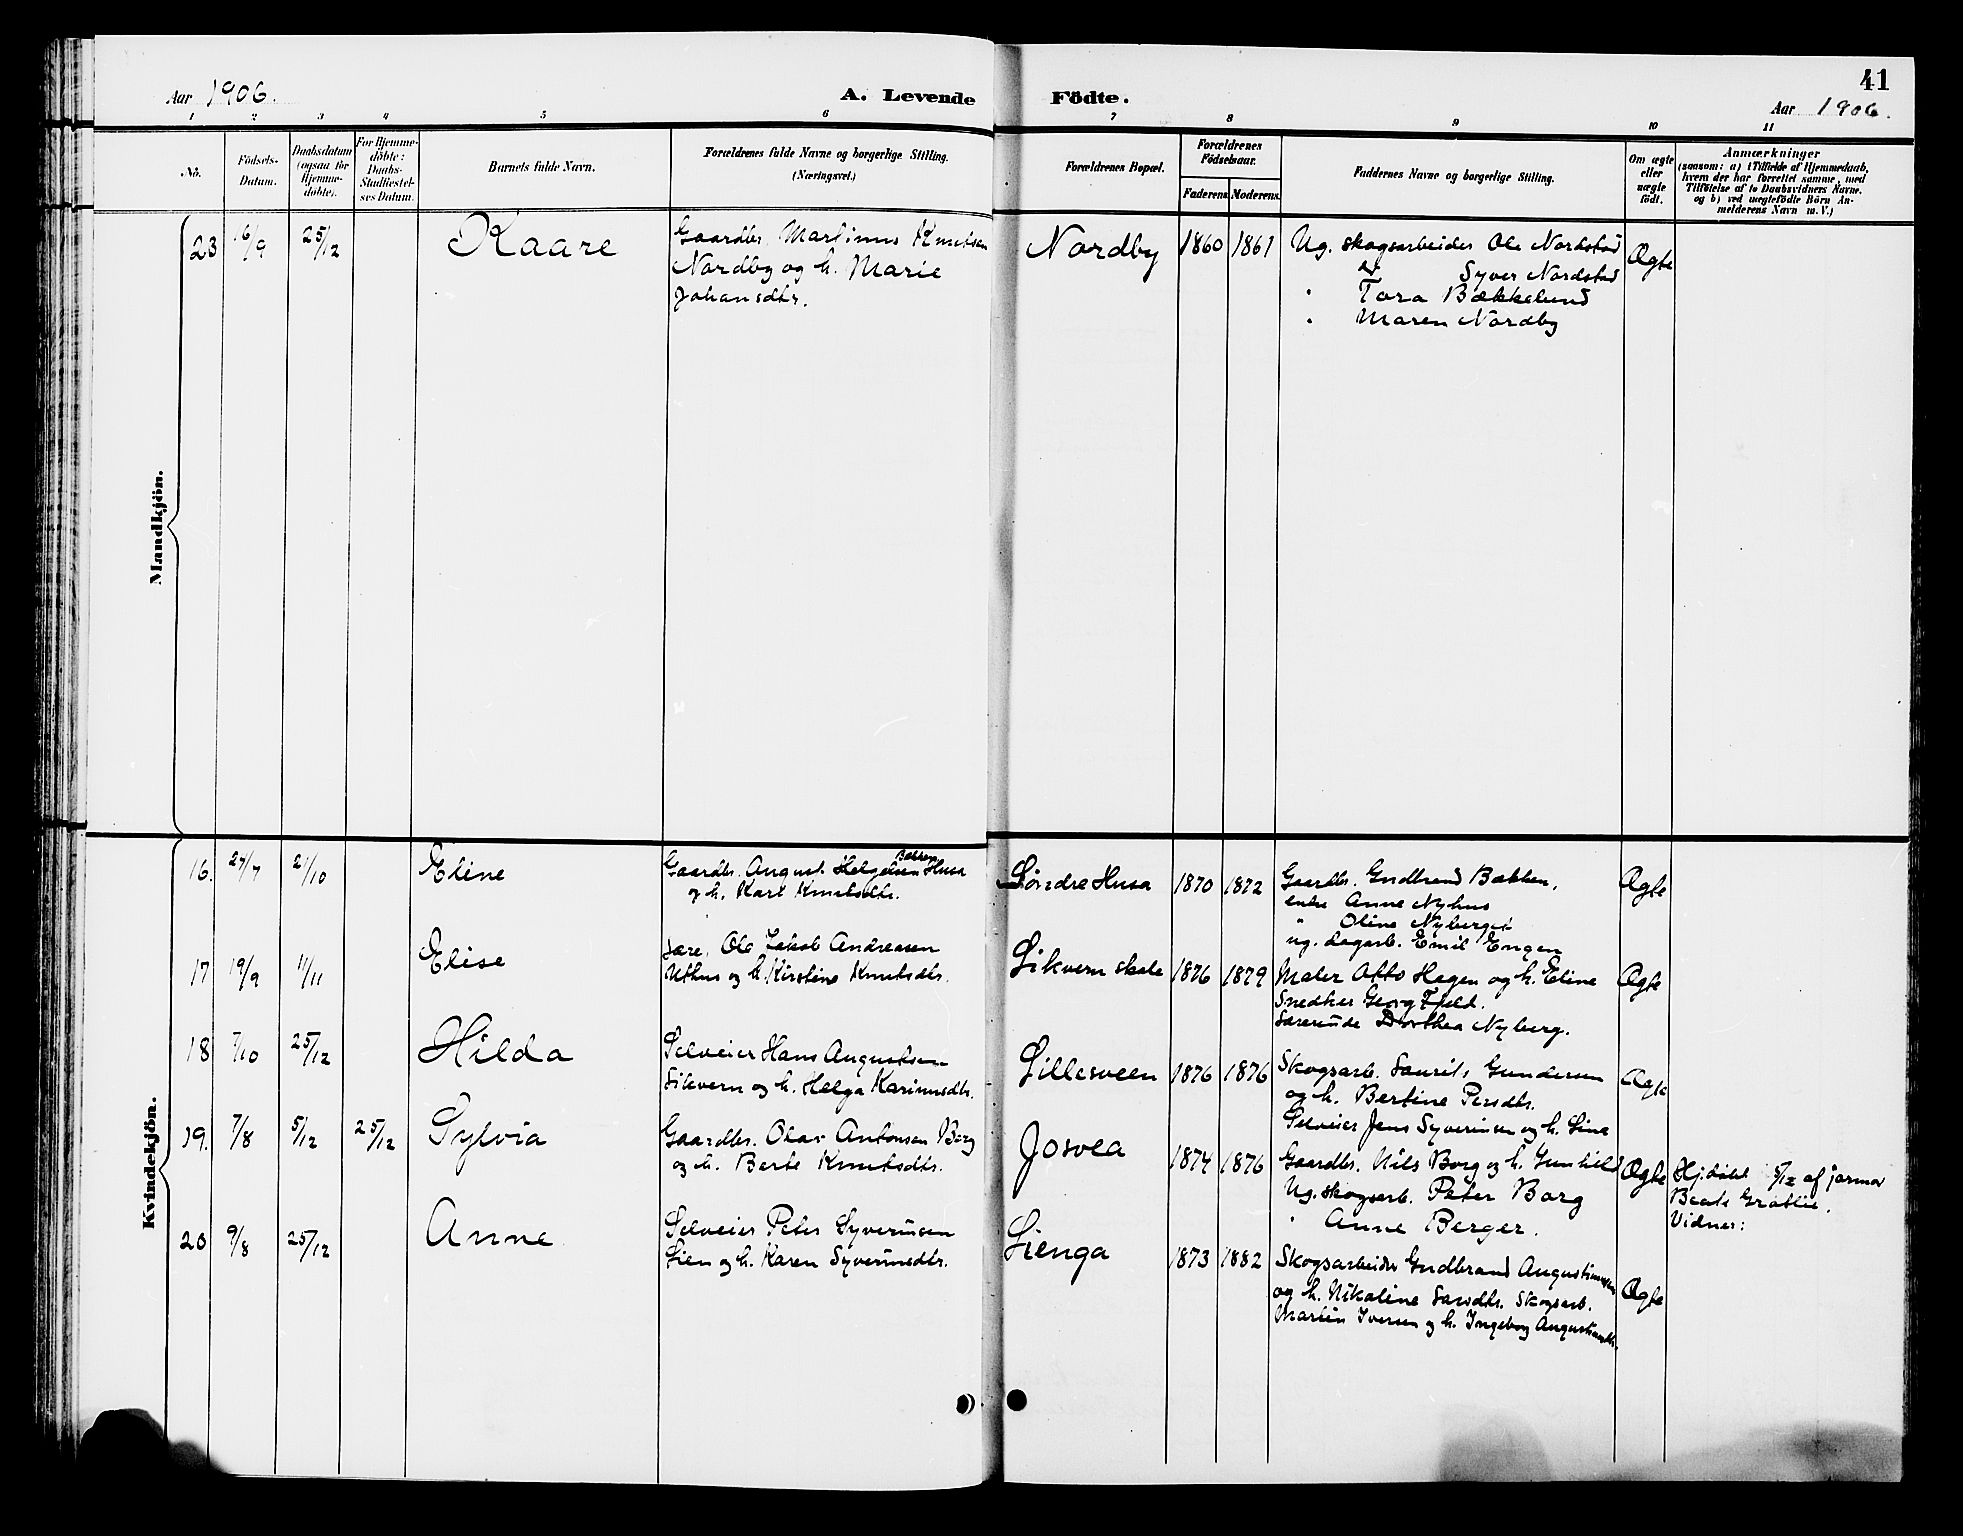 Aar 1906.
A. Levende Födte.
41
Aar 1906.
1 2 3 4 5 6 7 8 9 10 11
No.
Födsels-
Datum.
Daabsdatum
(ogsaa for
Hjemme-
døbte).
For Hjemme-
døbte:
Daabs-
Stadfæstel-
ses Datum.
Barnets fulde Navn.
Forældrenes fulde Navne og borgerlige Stilling.
(Næringsvei.)
Forældrenes Bopæl.
Forældrenes
Fødselsaar.
Faderens. Moderens.
Faddernes Navne og borgerlige Stilling.
Om ægte
eller
uægte
født.
Anmærkninger
(saasom: a) i Tilfælde af Hjemmedaab,
hvem der har forrettet samme, med
Tilføielse af to Daabsvidners Navne.
og b) ved uægtefødte Børn An-
melderens Navn m. V.)
Mandkjön.
23 16/9 25/12 Kaare
Gaardbr. Martinus Knutsen
Nordby og h. Marie
Johansdtr.
Nordby 1860 1861
Ug. skogsarbeider Ole Nordstad
Syver Nordstad
" Tora Bækkelund
" Maren Nordby
Ægte
Kvindekjön.
16. 27/7 21/10 Eline
Bakken
Gaardbr. August Helgesen Husa
og h. Kari Knutsdtr.
Søndre Husa 1870 1872
Gaardbr. Gudbrand Bakken,
enke Anne Nyhus
" Oline Nyberget
ug. dagarb. Emil Engen
Ægte
17 19/9 11/11 Elise
Lære. Ole Jakob Andreasen
Uthus og h. Kirstine Knutsdtr.
Likvern skole 1876 1879
Maler Otto Hagen og h. Eline
Snedker Georg Fjeld.
Lærerinde Dorthea Nyberg.
Ægte
18 7/10 25/12 Hilda
Selveier Hans Augustsen
Likvern og h. Helga Karinusdtr.
Lillesveen 1876 1876
Skogsarb. Laurits Gundersen
og h. Bertine Persdtr.
Selveier Jens Syverinsen og h. Lina
Ægte
19. 7/8 5/12 25/12 Sylvia
Gaardbr. Olav Antonsen Borg
og h. Berte Knutsdtr.
Josvea 1874 1876
Gaardbr. Nils Borg og h. Gunhild
Ug. skogsarb. Peter Borg
" Anne Berger.
Ægte
Hj. døbt 5/12 af jormor
Beate Grøtlie.
Vidner:
20 9/8 25/12 Anne
Selveier Peter Syverinsen
Lien og h. Karen Syverinsdtr.
Lienga 1873 1882
Skogsarbeider Gudbrand Augustinussen
og h. Nikoline Larsdtr. Skogsarb.
Martin Iversen og h. Ingeborg Augustinusdtr.
Ægte